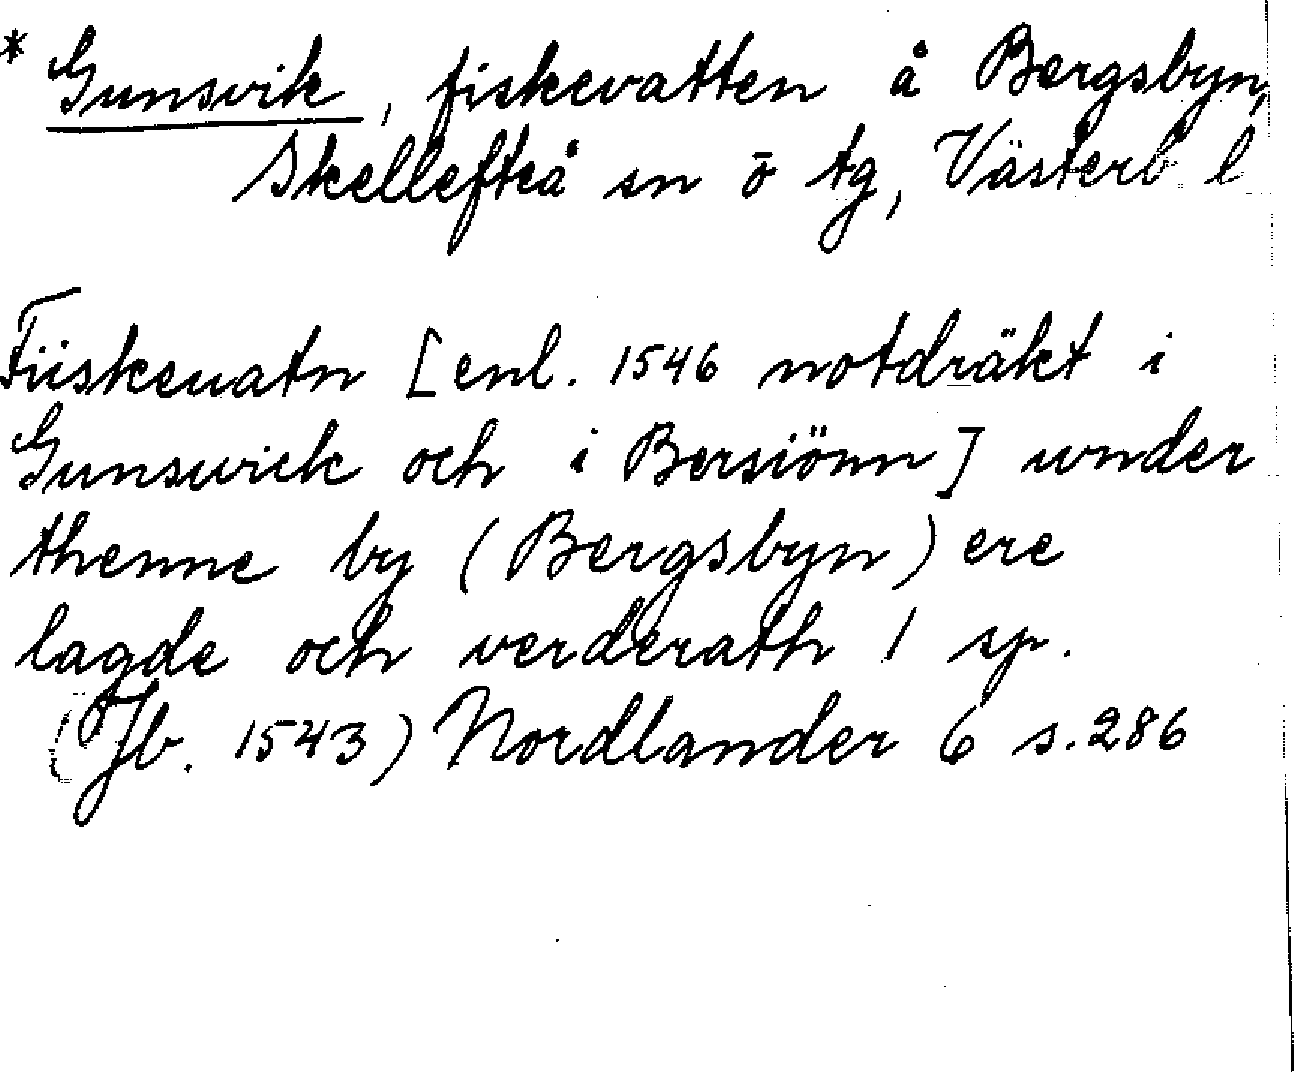 * Gunsvik, fiskevatten å Bergsbyn,
Skellefteå sn ö tg, Västerb l
Fiiskeuatn [enl. 1546 notdräkt i
Gunswick och i Bersiönn] wnder
thenne by (Bergsbyn) ere
lagde och verderath 1 sp.
(Jb. 1543) Nordlander 6 s. 286